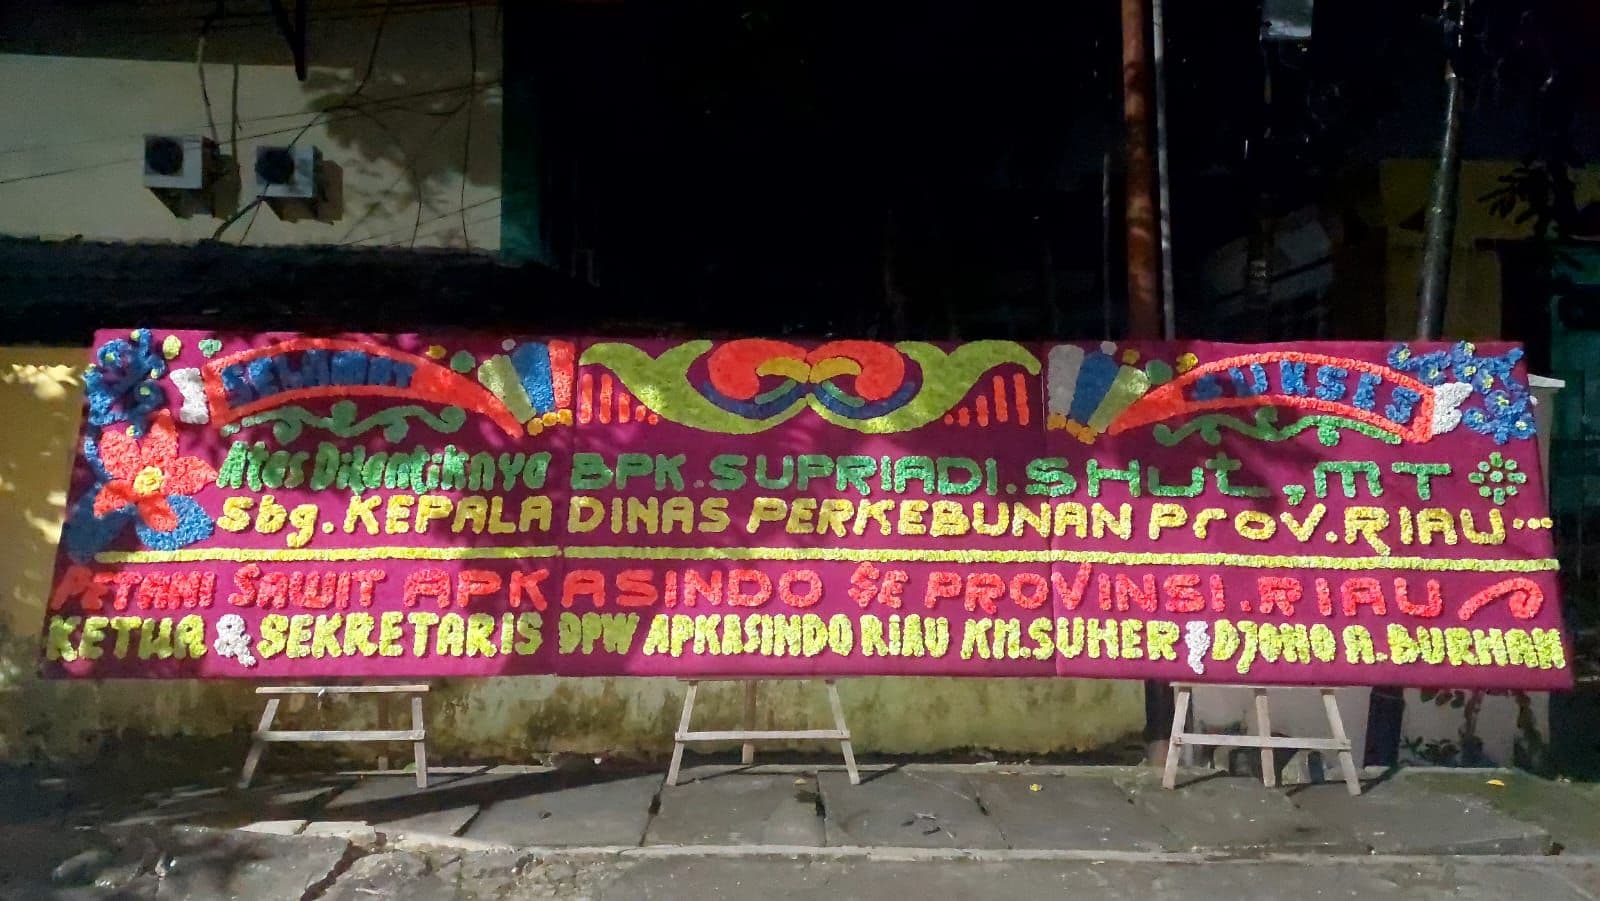 SELAMAT SUKSES
Atas Dilantiknya BPK. SUPRIADI. SHut, MT
Sbg. KEPALA DINAS PERKEBUNAN Prov. RIAU...
PETANI SAWIT APKASINDO SE PROVINSI. RIAU
KETUA & SEKRETARIS DPW APKASINDO RIAU KH. SUHER / DJONO A. BURHAN